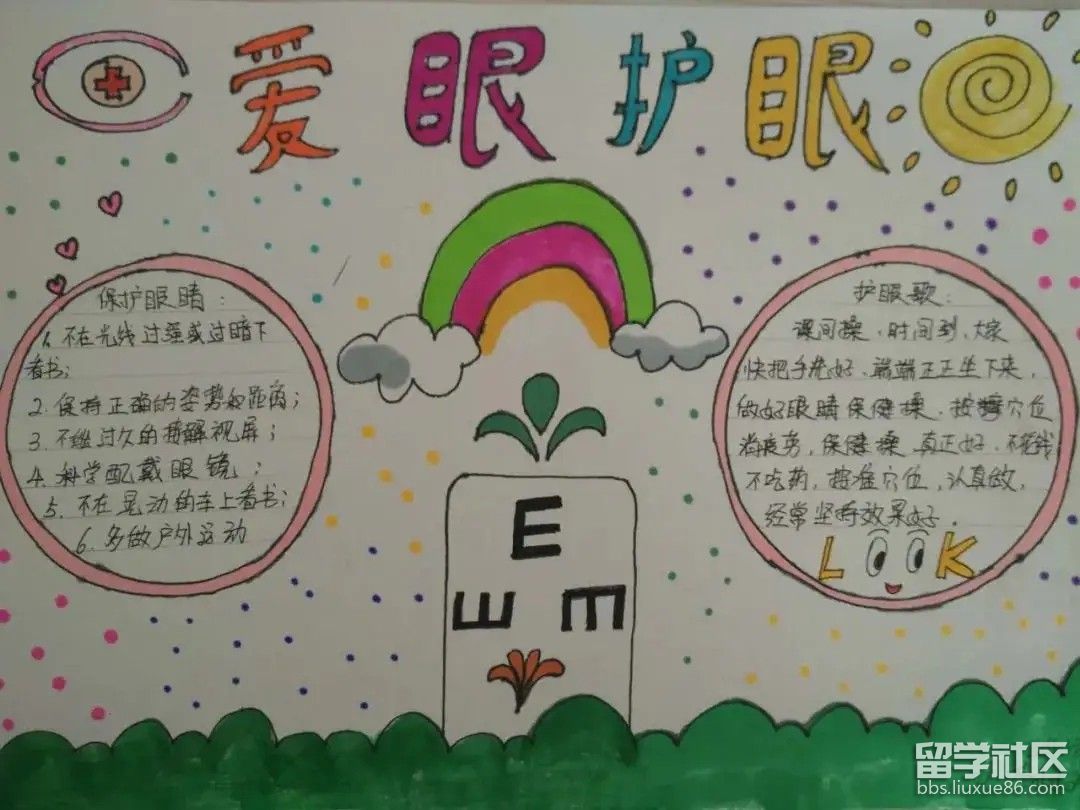 爱眼护眼
保护眼睛：
1. 不在光线过强或过暗下
看书；
2. 保持正确的姿势和距离；
3. 不经过久的接解视屏；
4. 科学配戴眼镜；
5. 不在晃动的车上看书；
6. 多做户外运动
E
E
E
护眼歌：
课间操，时间到，大家
快把手洗好，端端正正坐下来，
做好眼睛保健操，按穴位
消疲劳，保健操，真正好，不花钱
不吃药，按准穴位，认真做，
经常坚持效果好。
LOOK
留学社区
bbs.liuxue86.com